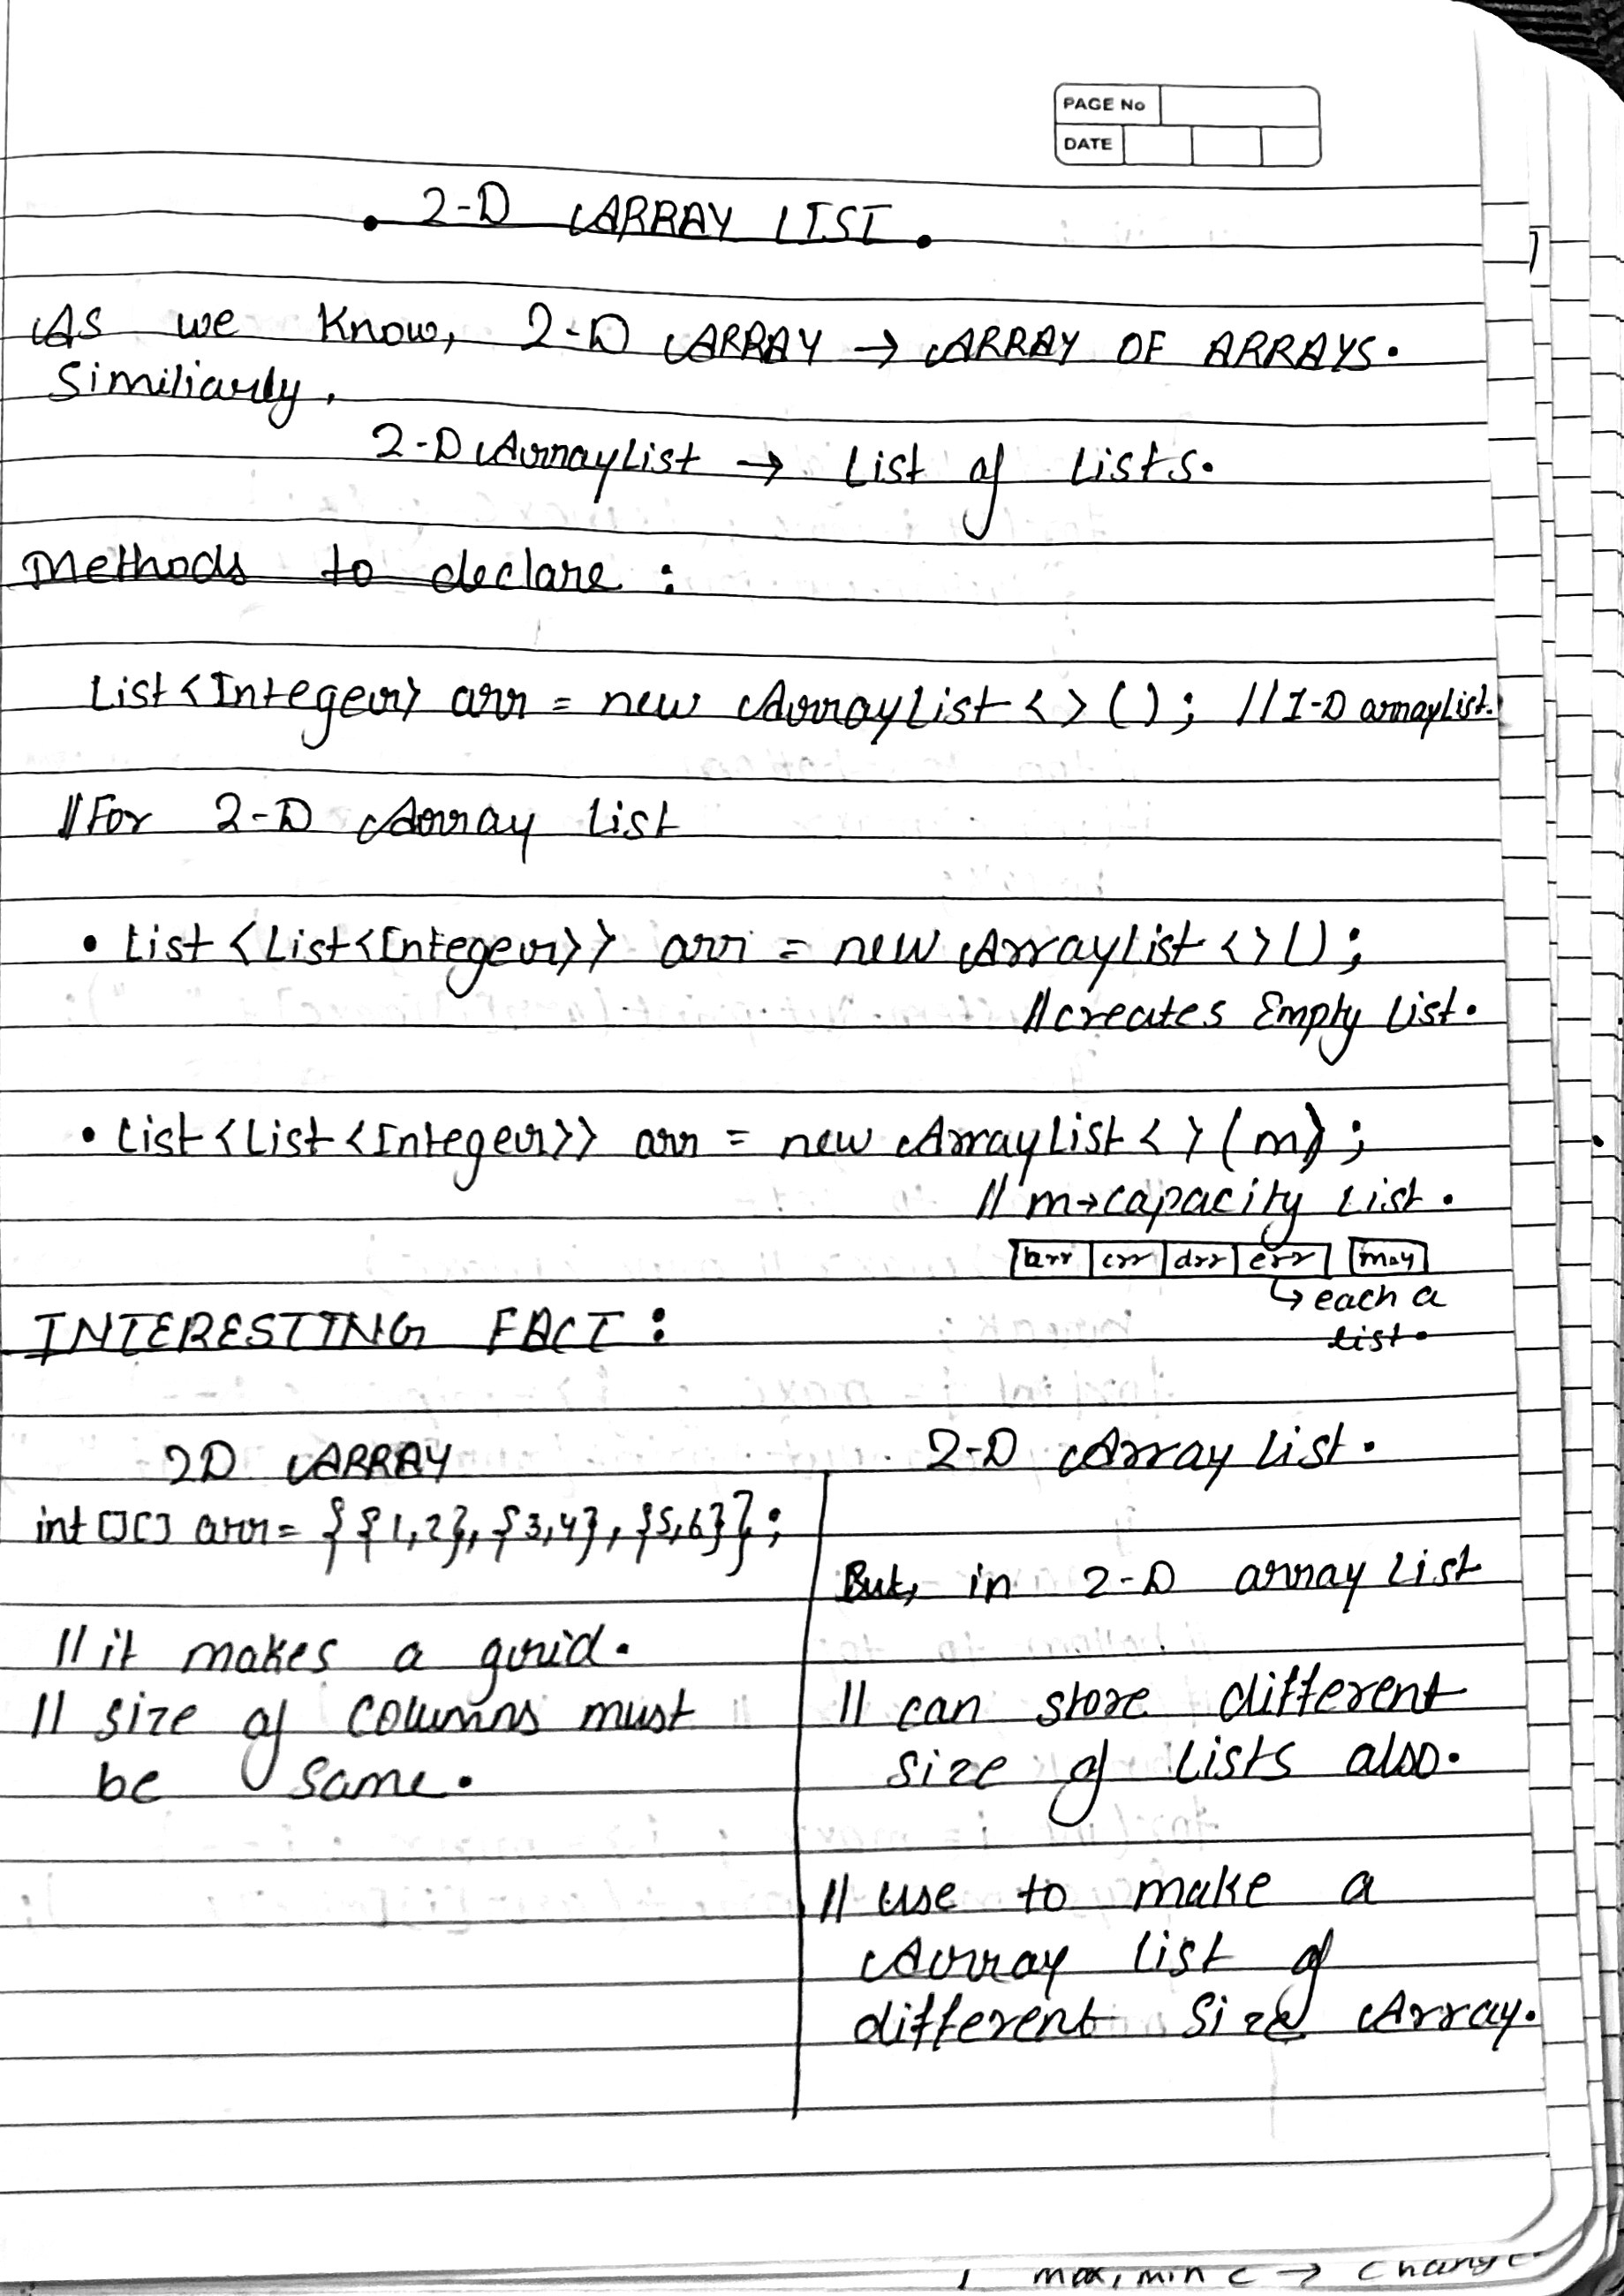 PAGE No
DATE
• 2-D ARRAY LIST •
As we Know, 2-D ARRAY → ARRAY OF ARRAYS.
Similiarly,
2-D ArrayList → List of Lists.
Methods to declare :
List<Integer> arr = new ArrayList<>(); //1-D arraylist.
//For 2-D Array List
• List<List<Integer>> arr = new ArrayList<>();
//creates Empty List.
• List<List<Integer>> arr = new ArrayList<>(m);
// m→capacity List.
brr crr drr err
→ each a
list.
INTERESTING FACT :
2D ARRAY
int[][] arr = {{1,2},{3,4},{5,6}};
//it makes a grid.
// size of columns must
be same.
2-D Array List.
But, in 2-D array List
// can store different
size of Lists also.
// use to make a
Array list of
different size Array.
max, min c → change